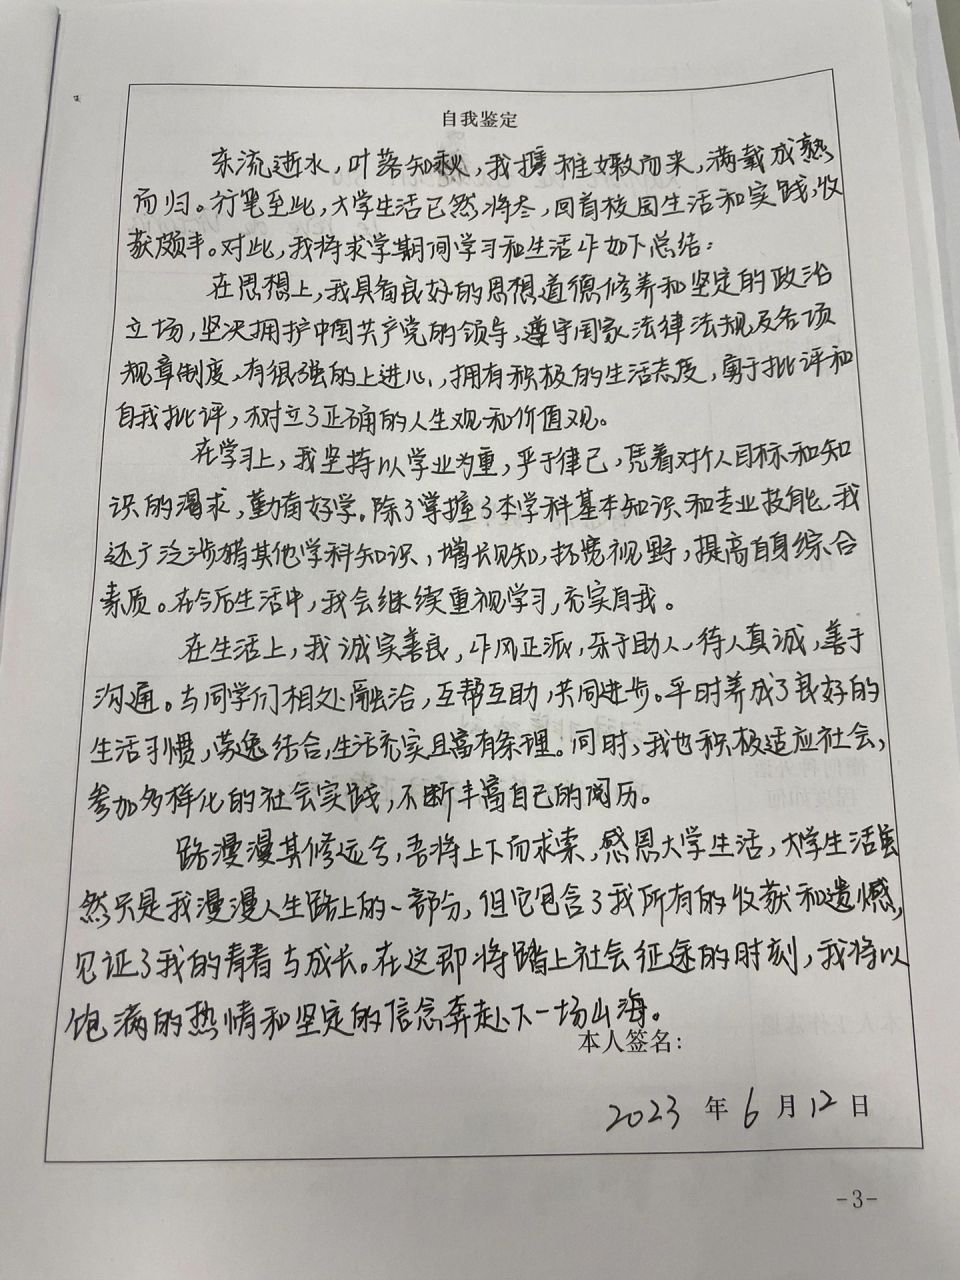 自我鉴定
东流逝水，叶落知秋，我携稚嫩而来，满载成熟
而归。行笔至此，大学生活已然将尽，回首校园生活和实践，收
获颇丰。对此，我将求学期间学习和生活作如下总结：
在思想上，我具备良好的思想道德修养和坚定的政治
立场，坚决拥护中国共产党的领导，遵守国家法律法规及各项
规章制度，有很强的上进心，拥有积极的生活态度，勇于批评和
自我批评，树立了正确的人生观和价值观。
在学习上，我坚持以学业为重，严于律己，凭着对个人目标和知
识的渴求，勤奋好学。除了掌握了本学科基本知识和专业技能，我
还广泛涉猎其他学科知识，增长见知，拓宽视野，提高自身综合
素质。在今后生活中，我会继续重视学习，充实自我。
在生活上，我诚实善良，作风正派，乐于助人，待人真诚，善于
沟通。与同学们相处融洽，互帮互助，共同进步。平时养成了良好的
生活习惯，劳逸结合，生活充实且富有条理。同时，我也积极适应社会，
参加多样化的社会实践，不断丰富自己的阅历。
路漫漫其修远兮，吾将上下而求索，感恩大学生活，大学生活虽
然只是我漫漫人生路上的一部分，但它包含了我所有的收获和遗憾，
见证了我的青春与成长。在这即将踏上社会征途的时刻，我将以
饱满的热情和坚定的信念奔赴下一场山海。
本人签名：
2023 年 6 月 12 日
-3-